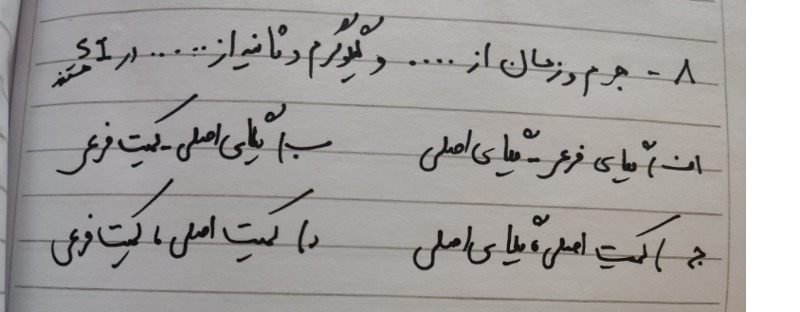 ۸- جرم و زمان از .... و کیلوگرم و ثانیه از ..... در SI هستند
الف) یکای فرعی - یکای اصلی ب) یکای اصلی - کمیت فرعی
ج) کمیت اصلی، یکای اصلی د) کمیت اصلی، کمیت فرعی